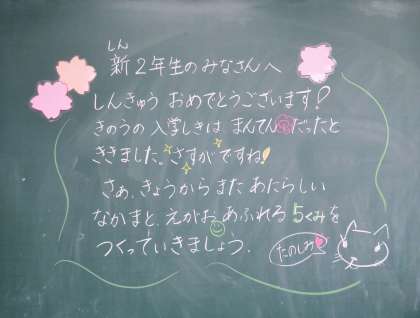 しん
新2年生のみなさんへ
しんきゅう おめでとうございます!
きのうの 入学しきは まんてんだったと
ききました。さすがですね!
さぁ、きょうから また あたらしい
なかまと、えがお あふれる 5くみを
つくっていきましょう。
たのしみ